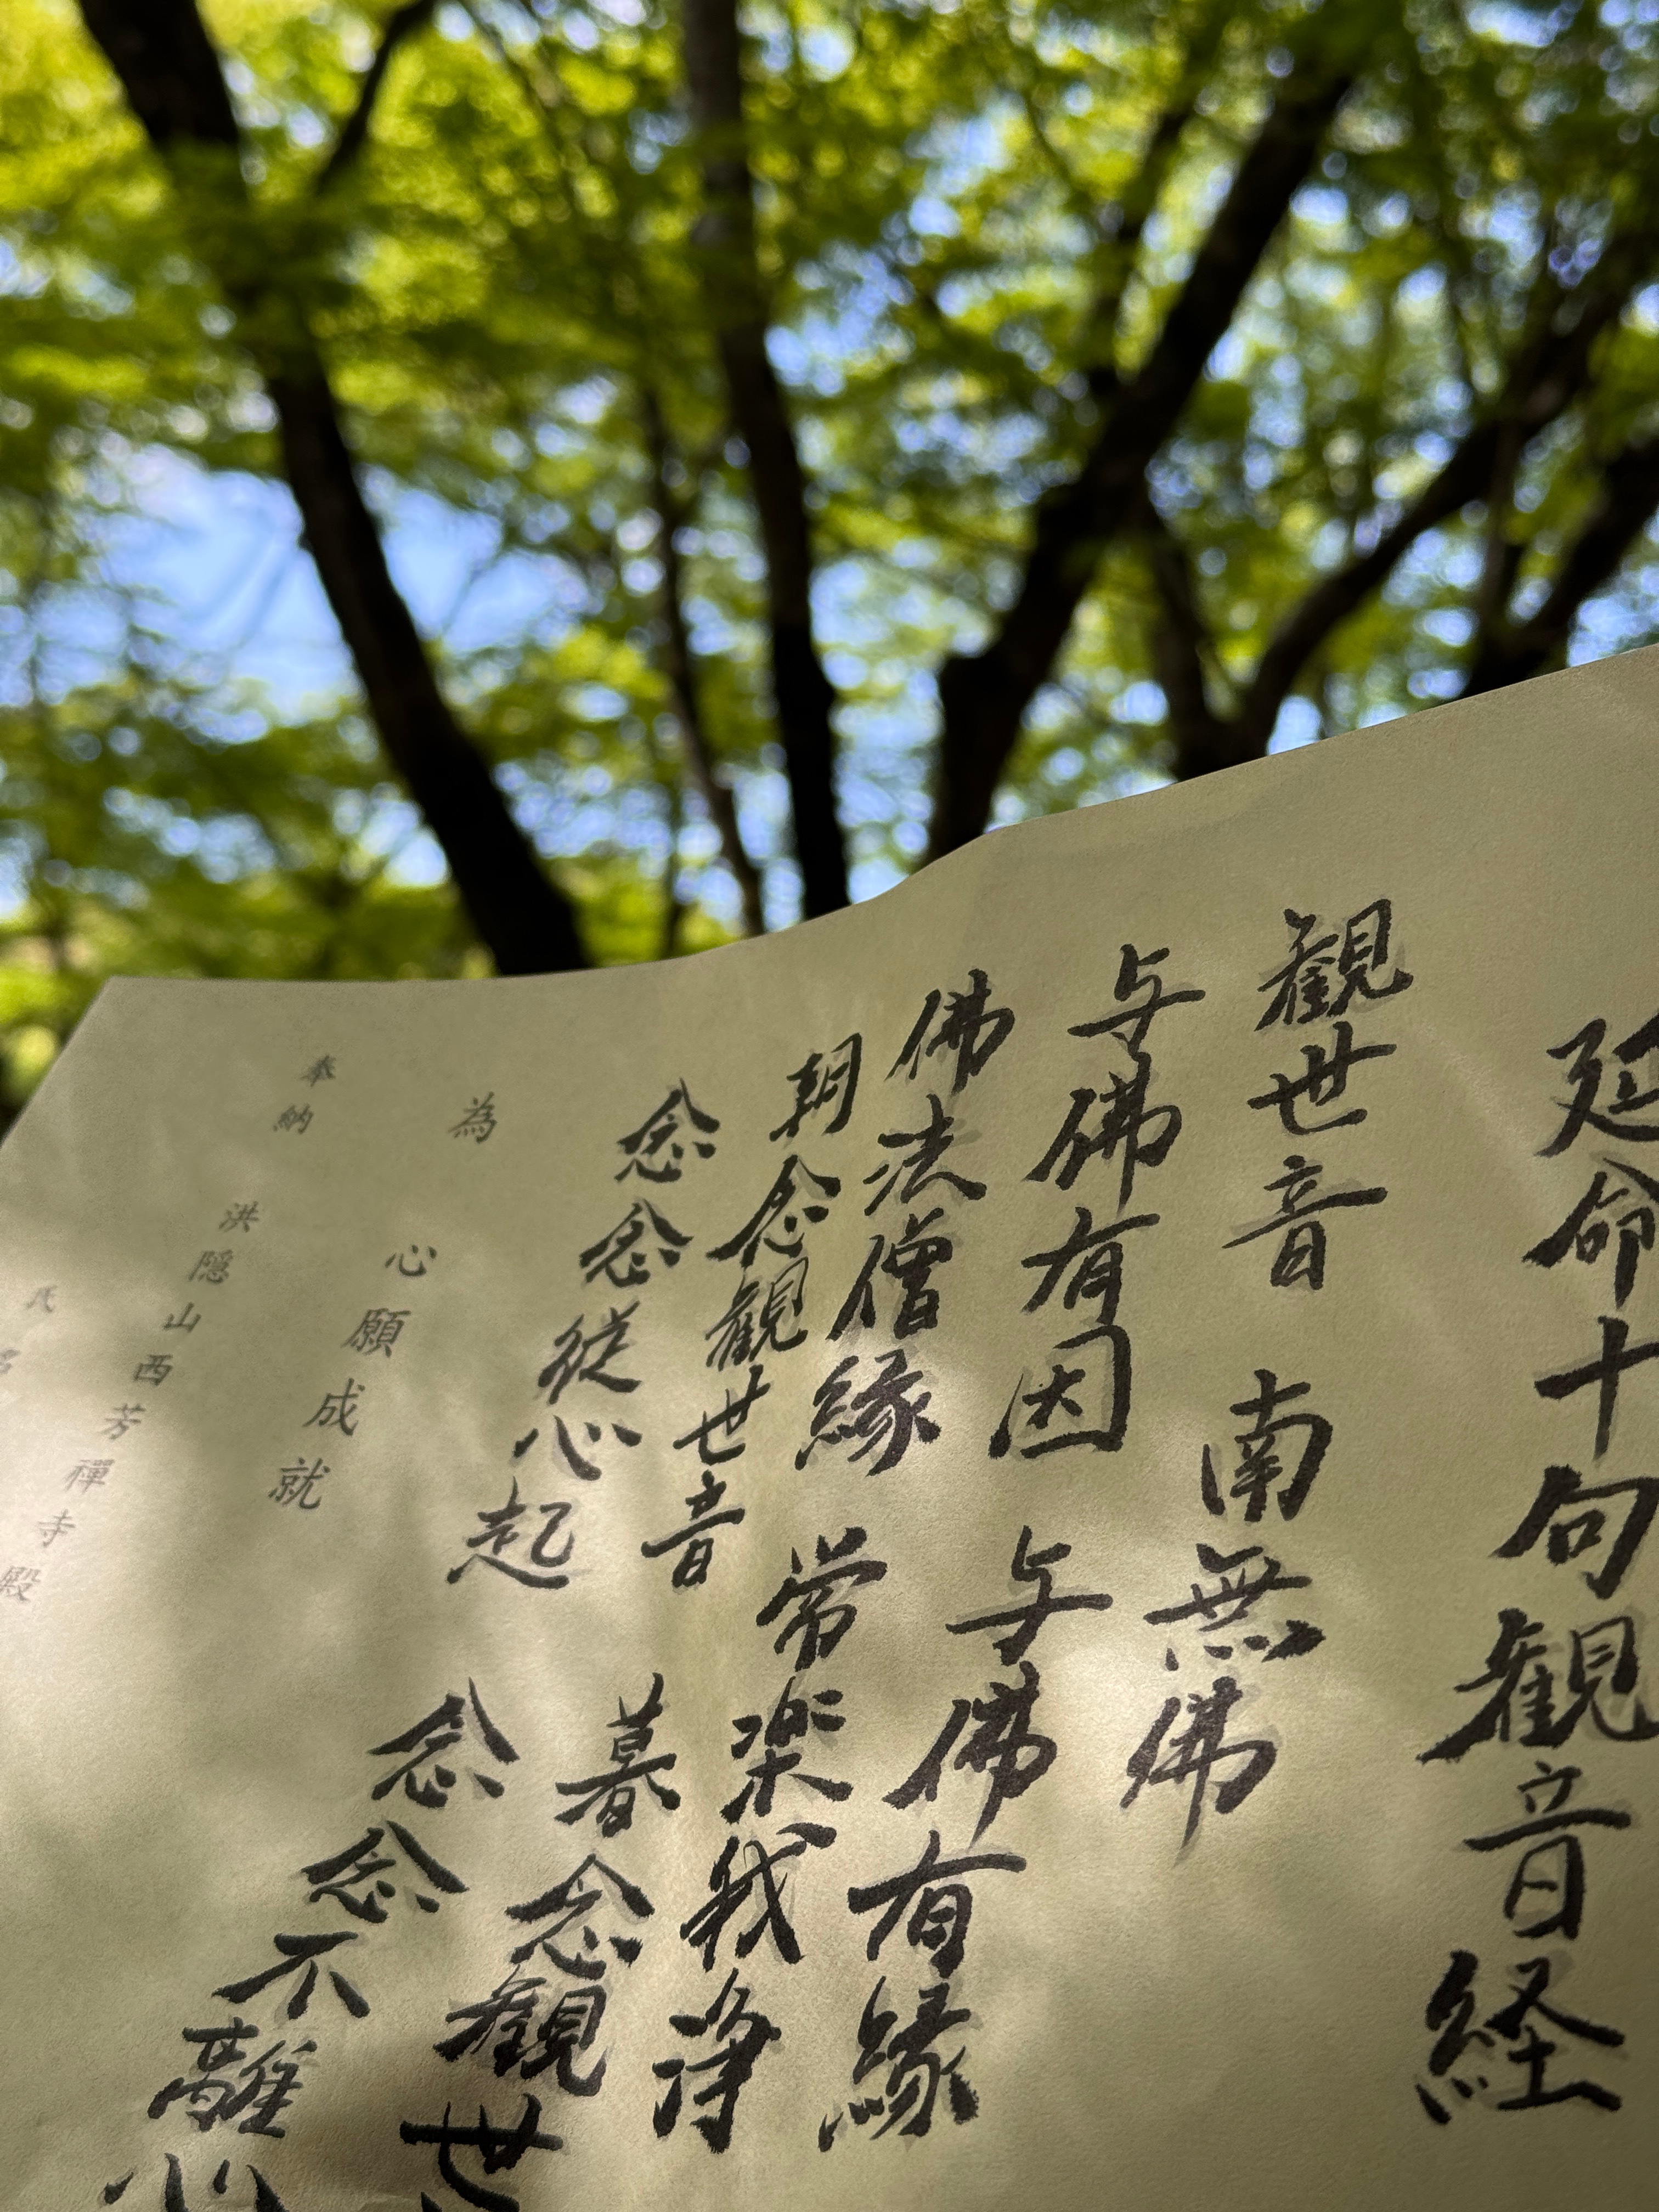 延命十句観音経
観世音　南無佛
与佛有因　与佛有縁
佛法僧縁　常楽我浄
朝念観世音　暮念観世
念念従心起　念念不離心
為　心願成就
奉納　洪隠山西芳禪寺殿
氏名